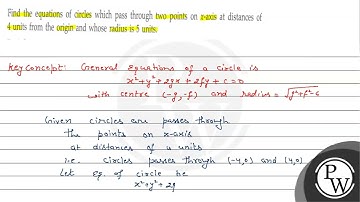 Find the equations of circles which pass through two points on x-axis at distances of
4 units from the origin and whose radius is 5 units.
Key Concept: General Equations of a circle is
x²+y²+2gx+2fy+c=0
with centre (-g,-f) and radius=√g²+f²-c
Given circles are passes through
the points on x-axis
at distances of 4 units
i.e. circles passes through (-4,0) and (4,0)
Let Eq. of circle be
x²+y²+2g
P
W